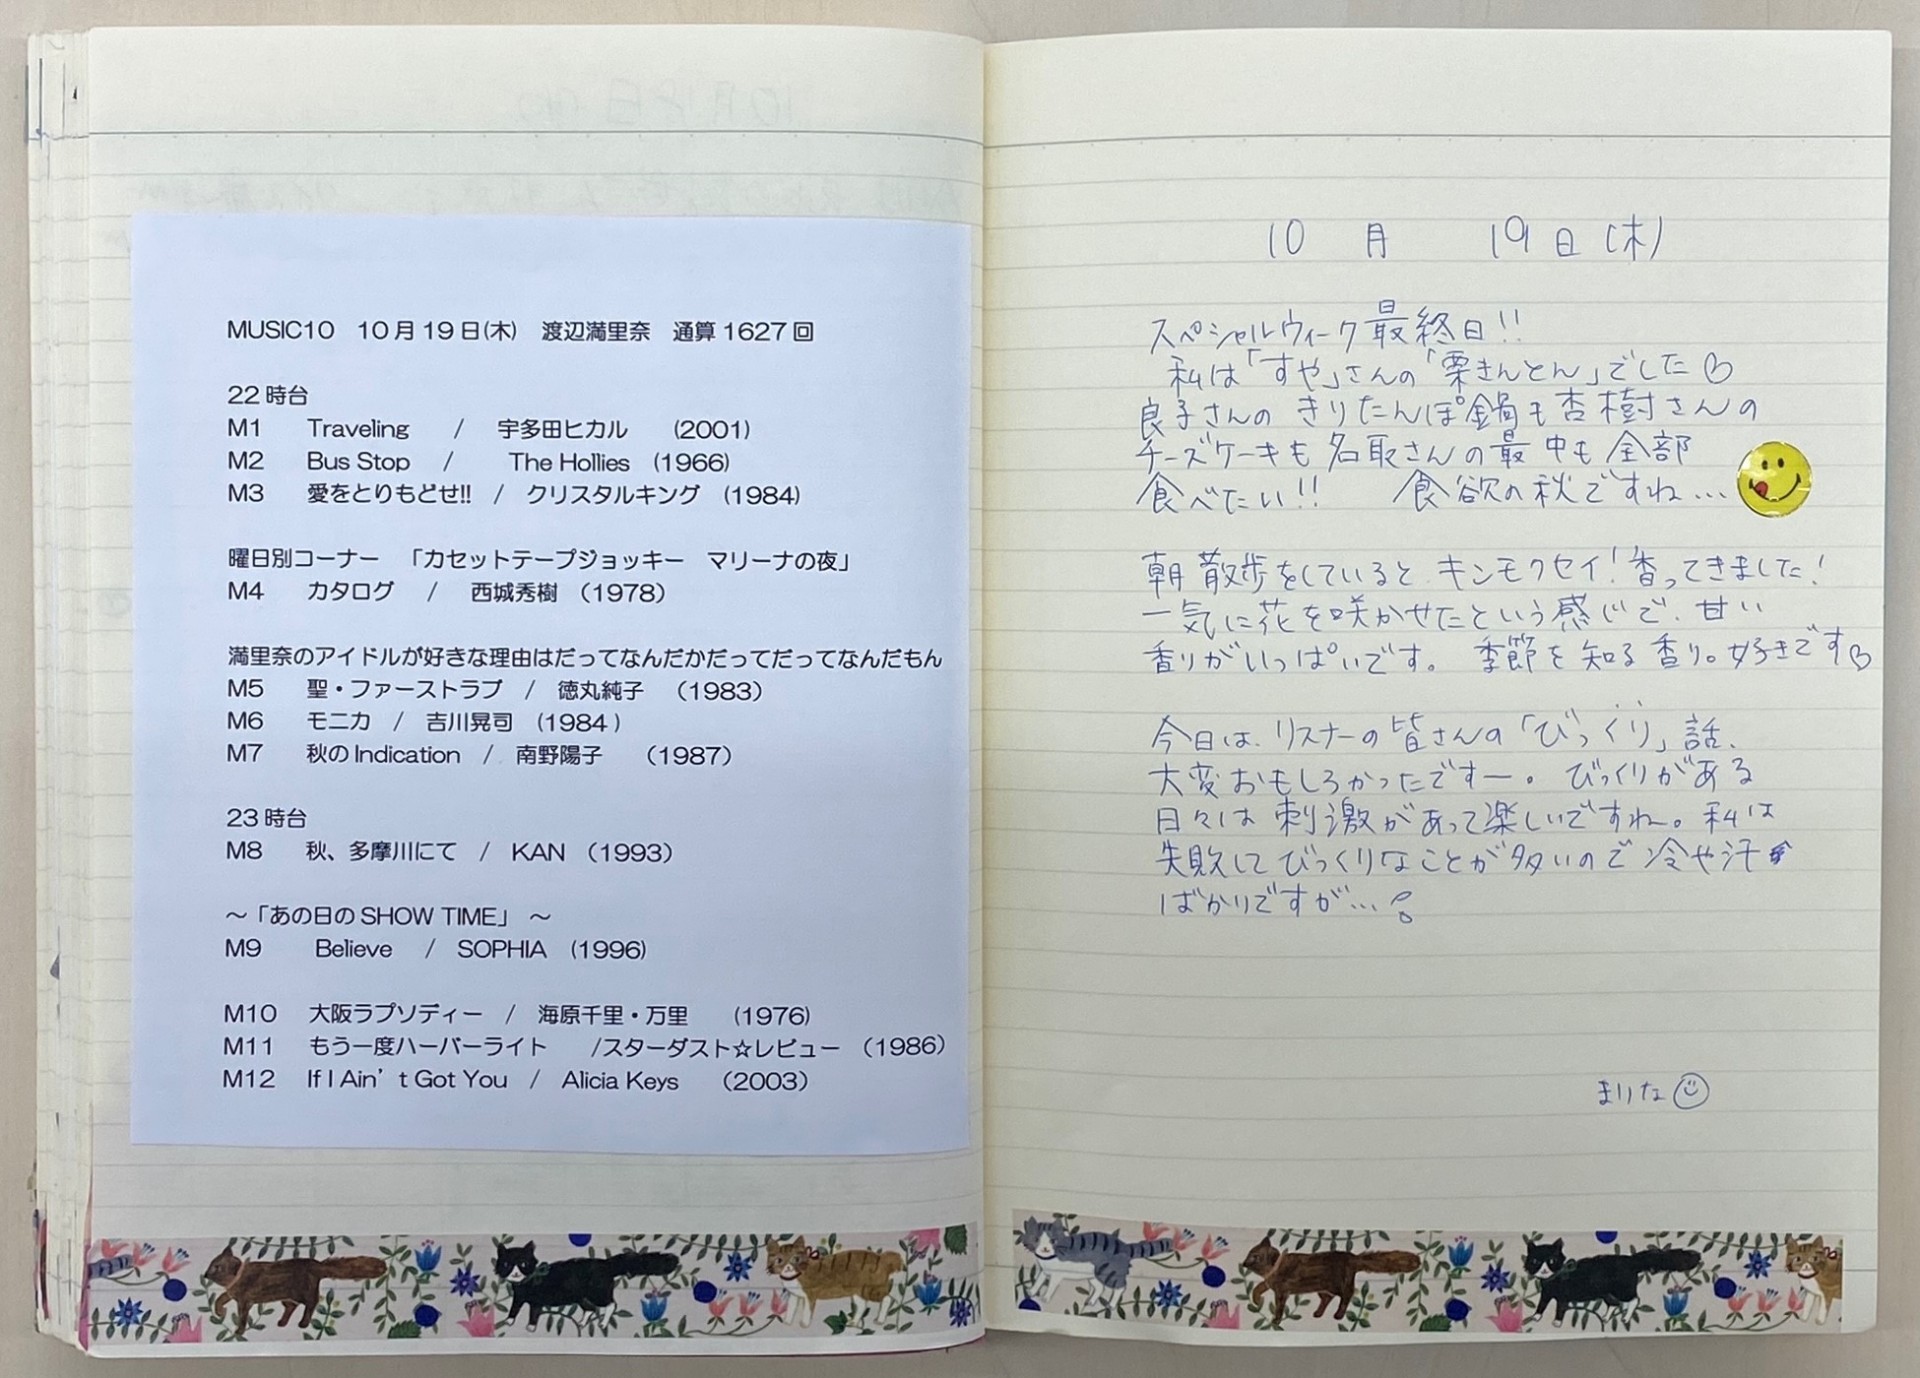 MUSIC10 10月19日(木) 渡辺満里奈 通算1627回
22時台
M1 Traveling / 宇多田ヒカル (2001)
M2 Bus Stop / The Hollies (1966)
M3 愛をとりもどせ!! / クリスタルキング (1984)
曜日別コーナー 「カセットテープジョッキー マリーナの夜」
M4 カタログ / 西城秀樹 (1978)
満里奈のアイドルが好きな理由はだってなんだかだってだってなんだもん
M5 聖・ファーストラブ / 徳丸純子 (1983)
M6 モニカ / 吉川晃司 (1984)
M7 秋のIndication / 南野陽子 (1987)
23時台
M8 秋、多摩川にて / KAN (1993)
～「あの日のSHOW TIME」～
M9 Believe / SOPHIA (1996)
M10 大阪ラプソディー / 海原千里・万里 (1976)
M11 もう一度ハーバーライト /スターダスト☆レビュー (1986)
M12 If I Ain't Got You / Alicia Keys (2003)
10月 19日(木)
スペシャルウィーク最終日!!
私は「すや」さんの「栗きんとん」でした♡
良子さんのきりたんぽ鍋も杏樹さんの
チーズケーキも名取さんの最中も全部
食べたい!! 食欲の秋ですね…
朝散歩をしていると、キンモクセイ!香ってきました!
一気に花を咲かせたという感じで、甘い
香りがいっぱいです。季節を知る香り。好きです♡
今日は、リスナーの皆さんの「びっくり」話、
大変おもしろかったですー。びっくりがある
日々は刺激があって楽しいですね。私は
失敗してびっくりなことが多いので冷や汗
ばかりですが…
まりな